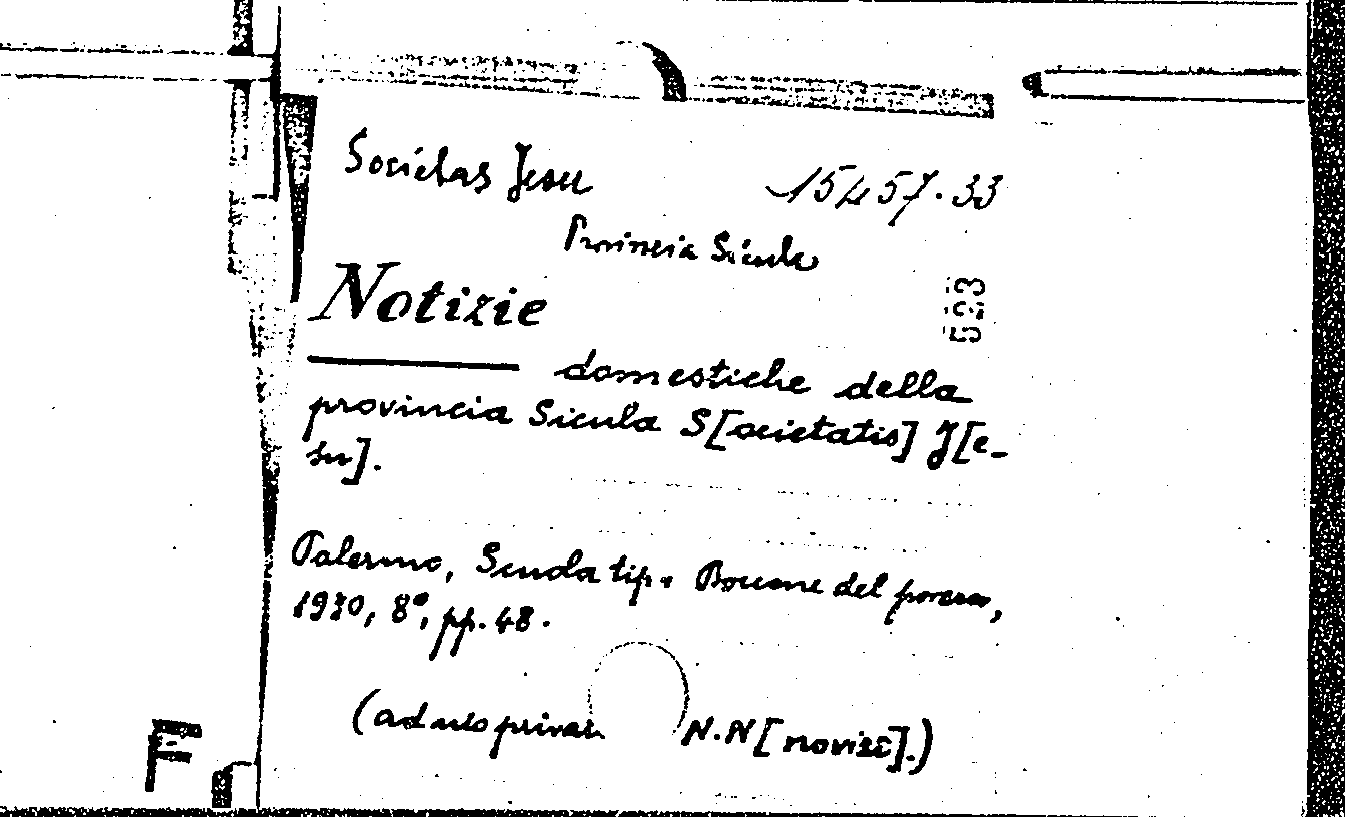 Societas Jesu 15457.33
Provincia Sicula
Notizie
523
domestiche della
provincia Sicula S[ocietatis] J[e-
su].
Palermo, Scuola tip. Boccone del povero,
1930, 8°, pp. 48.
(ad uso privat N.N[novizî].)
F